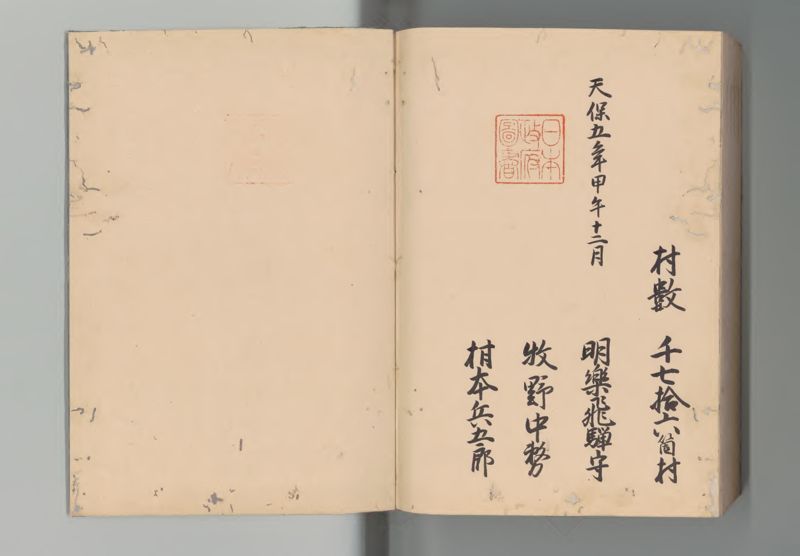 村數 千七拾六箇村
天保五年甲午十二月
明樂飛騨守
牧野中務
村本兵五郎
日本
政府
圖書